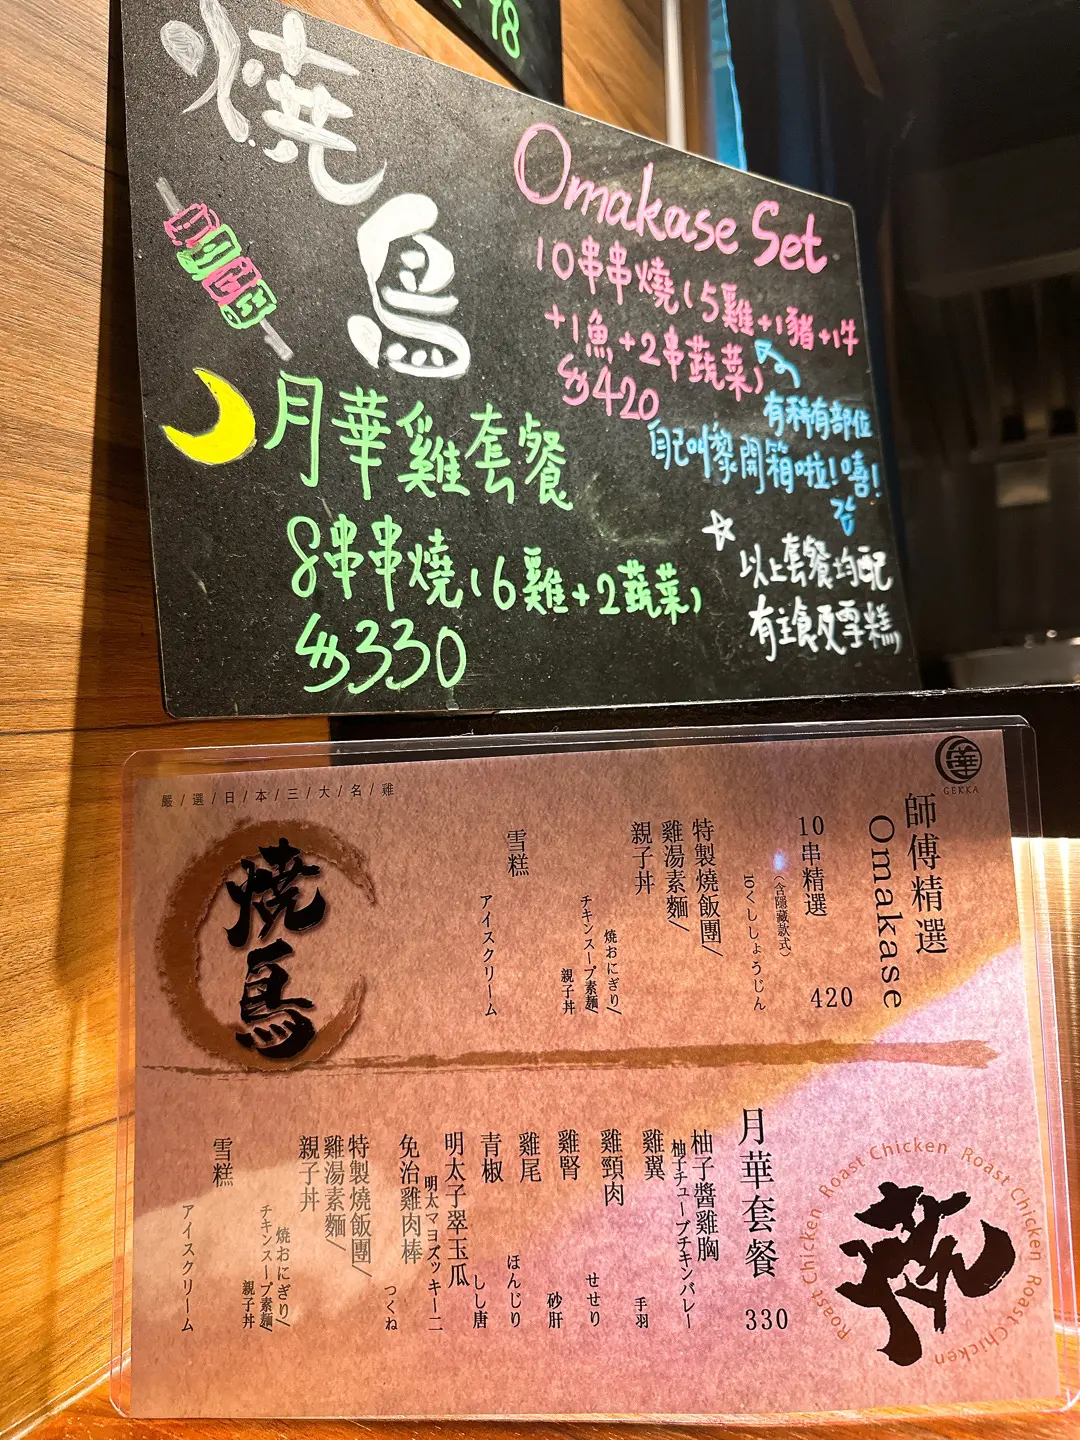 78
燒鳥
Omakase Set
10串串燒(5雞+1豬+1牛
+1魚+2串蔬菜)
$420
有稀有部位
自己叫黎開箱啦!嘻!
月華雞套餐
8串串燒(6雞+2蔬菜)
$330
☆以上套餐均配
有主食及雪糕
嚴/選/日/本/三/大/名/雞
燒鳥
GEKKA
師傅精選
Omakase
10串精選
420
(含隱藏款式)
10くししょうじん
特製燒飯團/
雞湯素麵/
親子丼
焼おにぎり/
チキンスープ素麺/
親子丼
雪糕
アイスクリーム
月華套餐
330
柚子醬雞胸
柚子チューブチキンバレー
雞翼
手羽
雞頸肉
せせり
雞腎
砂肝
雞尾
ぼんじり
青椒
しし唐
明太子翠玉瓜
明太マヨズッキーニ
免治雞肉棒
つくね
特製燒飯團/
雞湯素麵/
親子丼
焼おにぎり/
チキンスープ素麺/
親子丼
雪糕
アイスクリーム
Roast Chicken Roast Chicken Roast Chicken Roast Chicken
燒